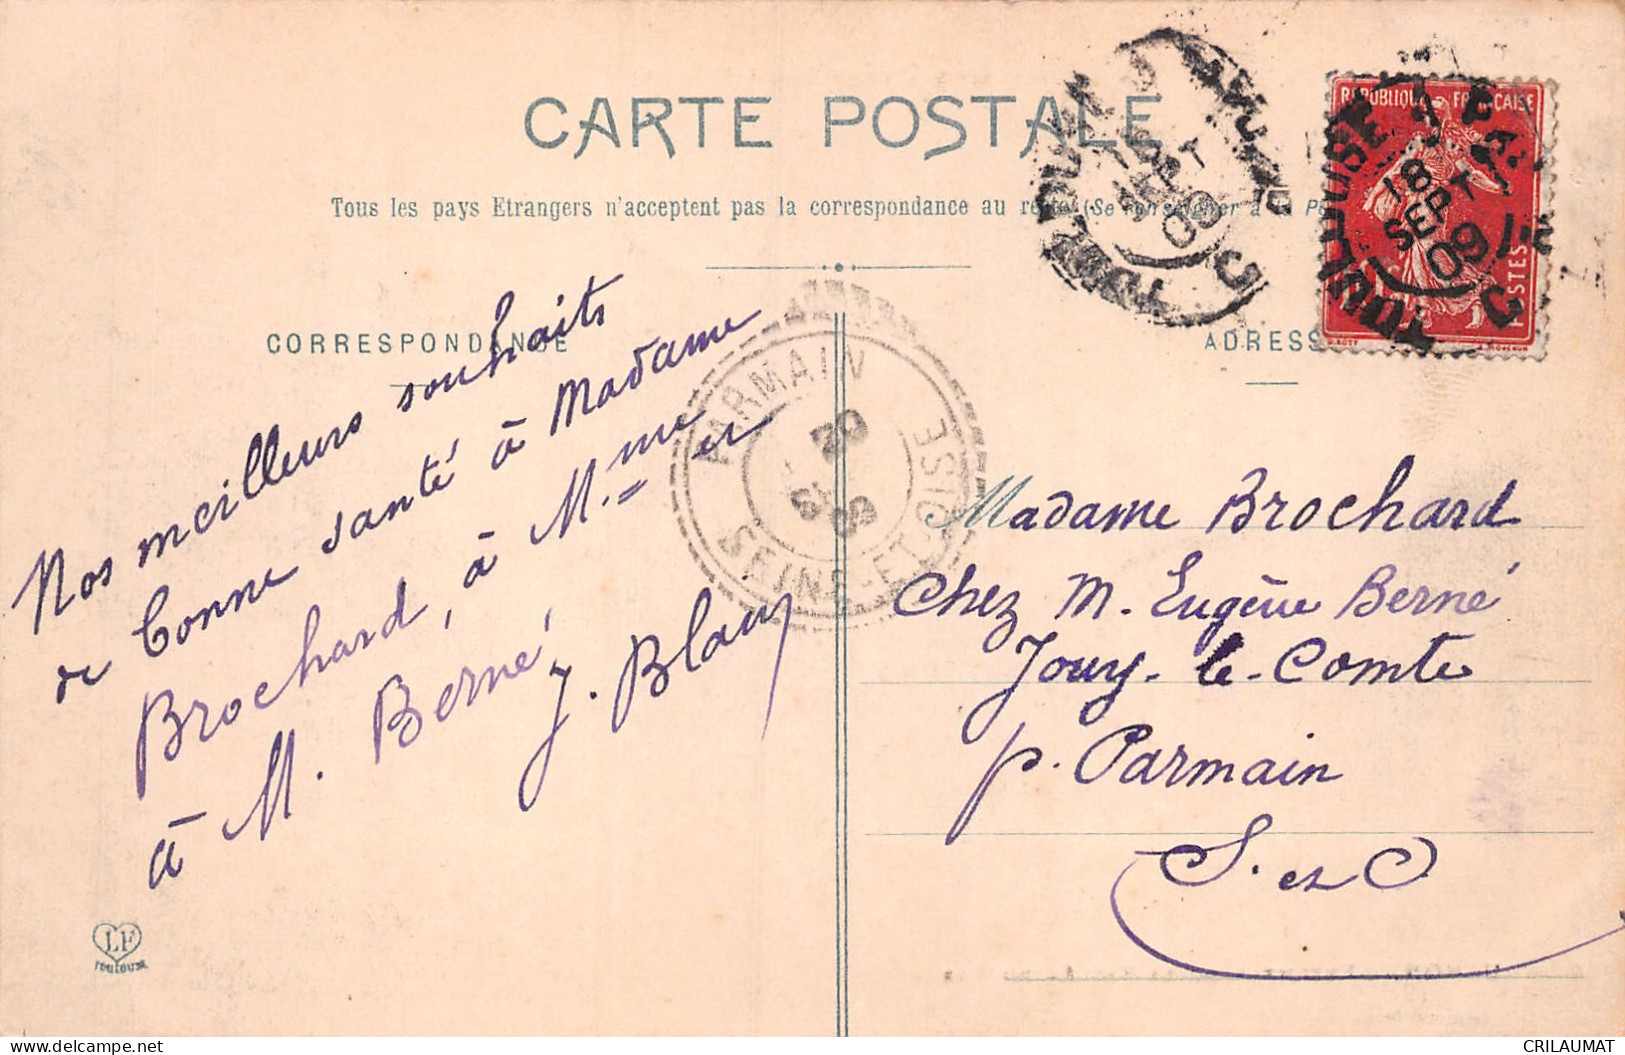 CARTE POSTALE
Tous les pays Etrangers n'acceptent pas la correspondance au recto (Se renseigner à la
CORRESPONDANCE
ADRESSE
REPUBLIQUE FRANÇAISE
POSTES
TOULOUSE
18
SEPT
09
TOULOUSE
18
SEPT
09
PARMAIN
20
09
SEINE-ET-OISE
Nos meilleurs souhaits
de bonne santé à Madame
Brochard, à M.me et
à M. Berné
J. Blain
Madame Brochard
Chez M. Eugène Berné
Jouy-le-Comte
p. Parmain
S. et O
LF
TOULOUSE
CRILAUMAT